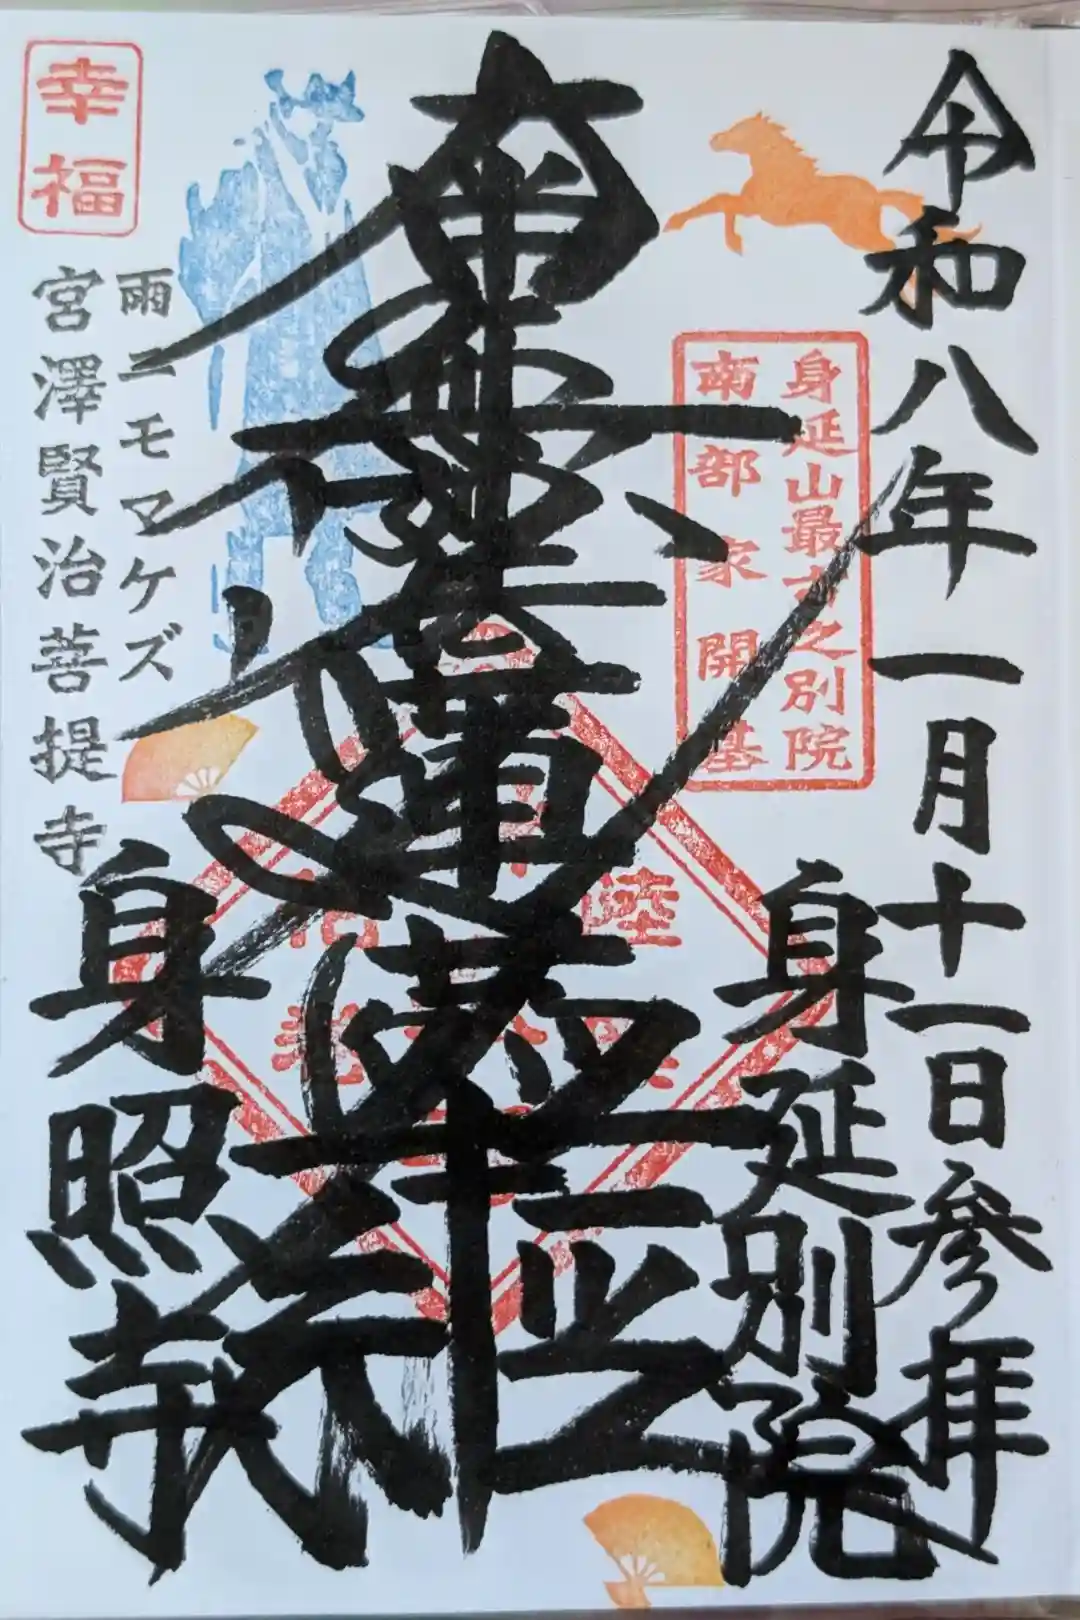 令和八年一月十一日参拝
身延別院
身延山最古之別院
南部家開基
南無妙法蓮華経
雨ニモマケズ
宮澤賢治菩提寺
身照寺
幸福